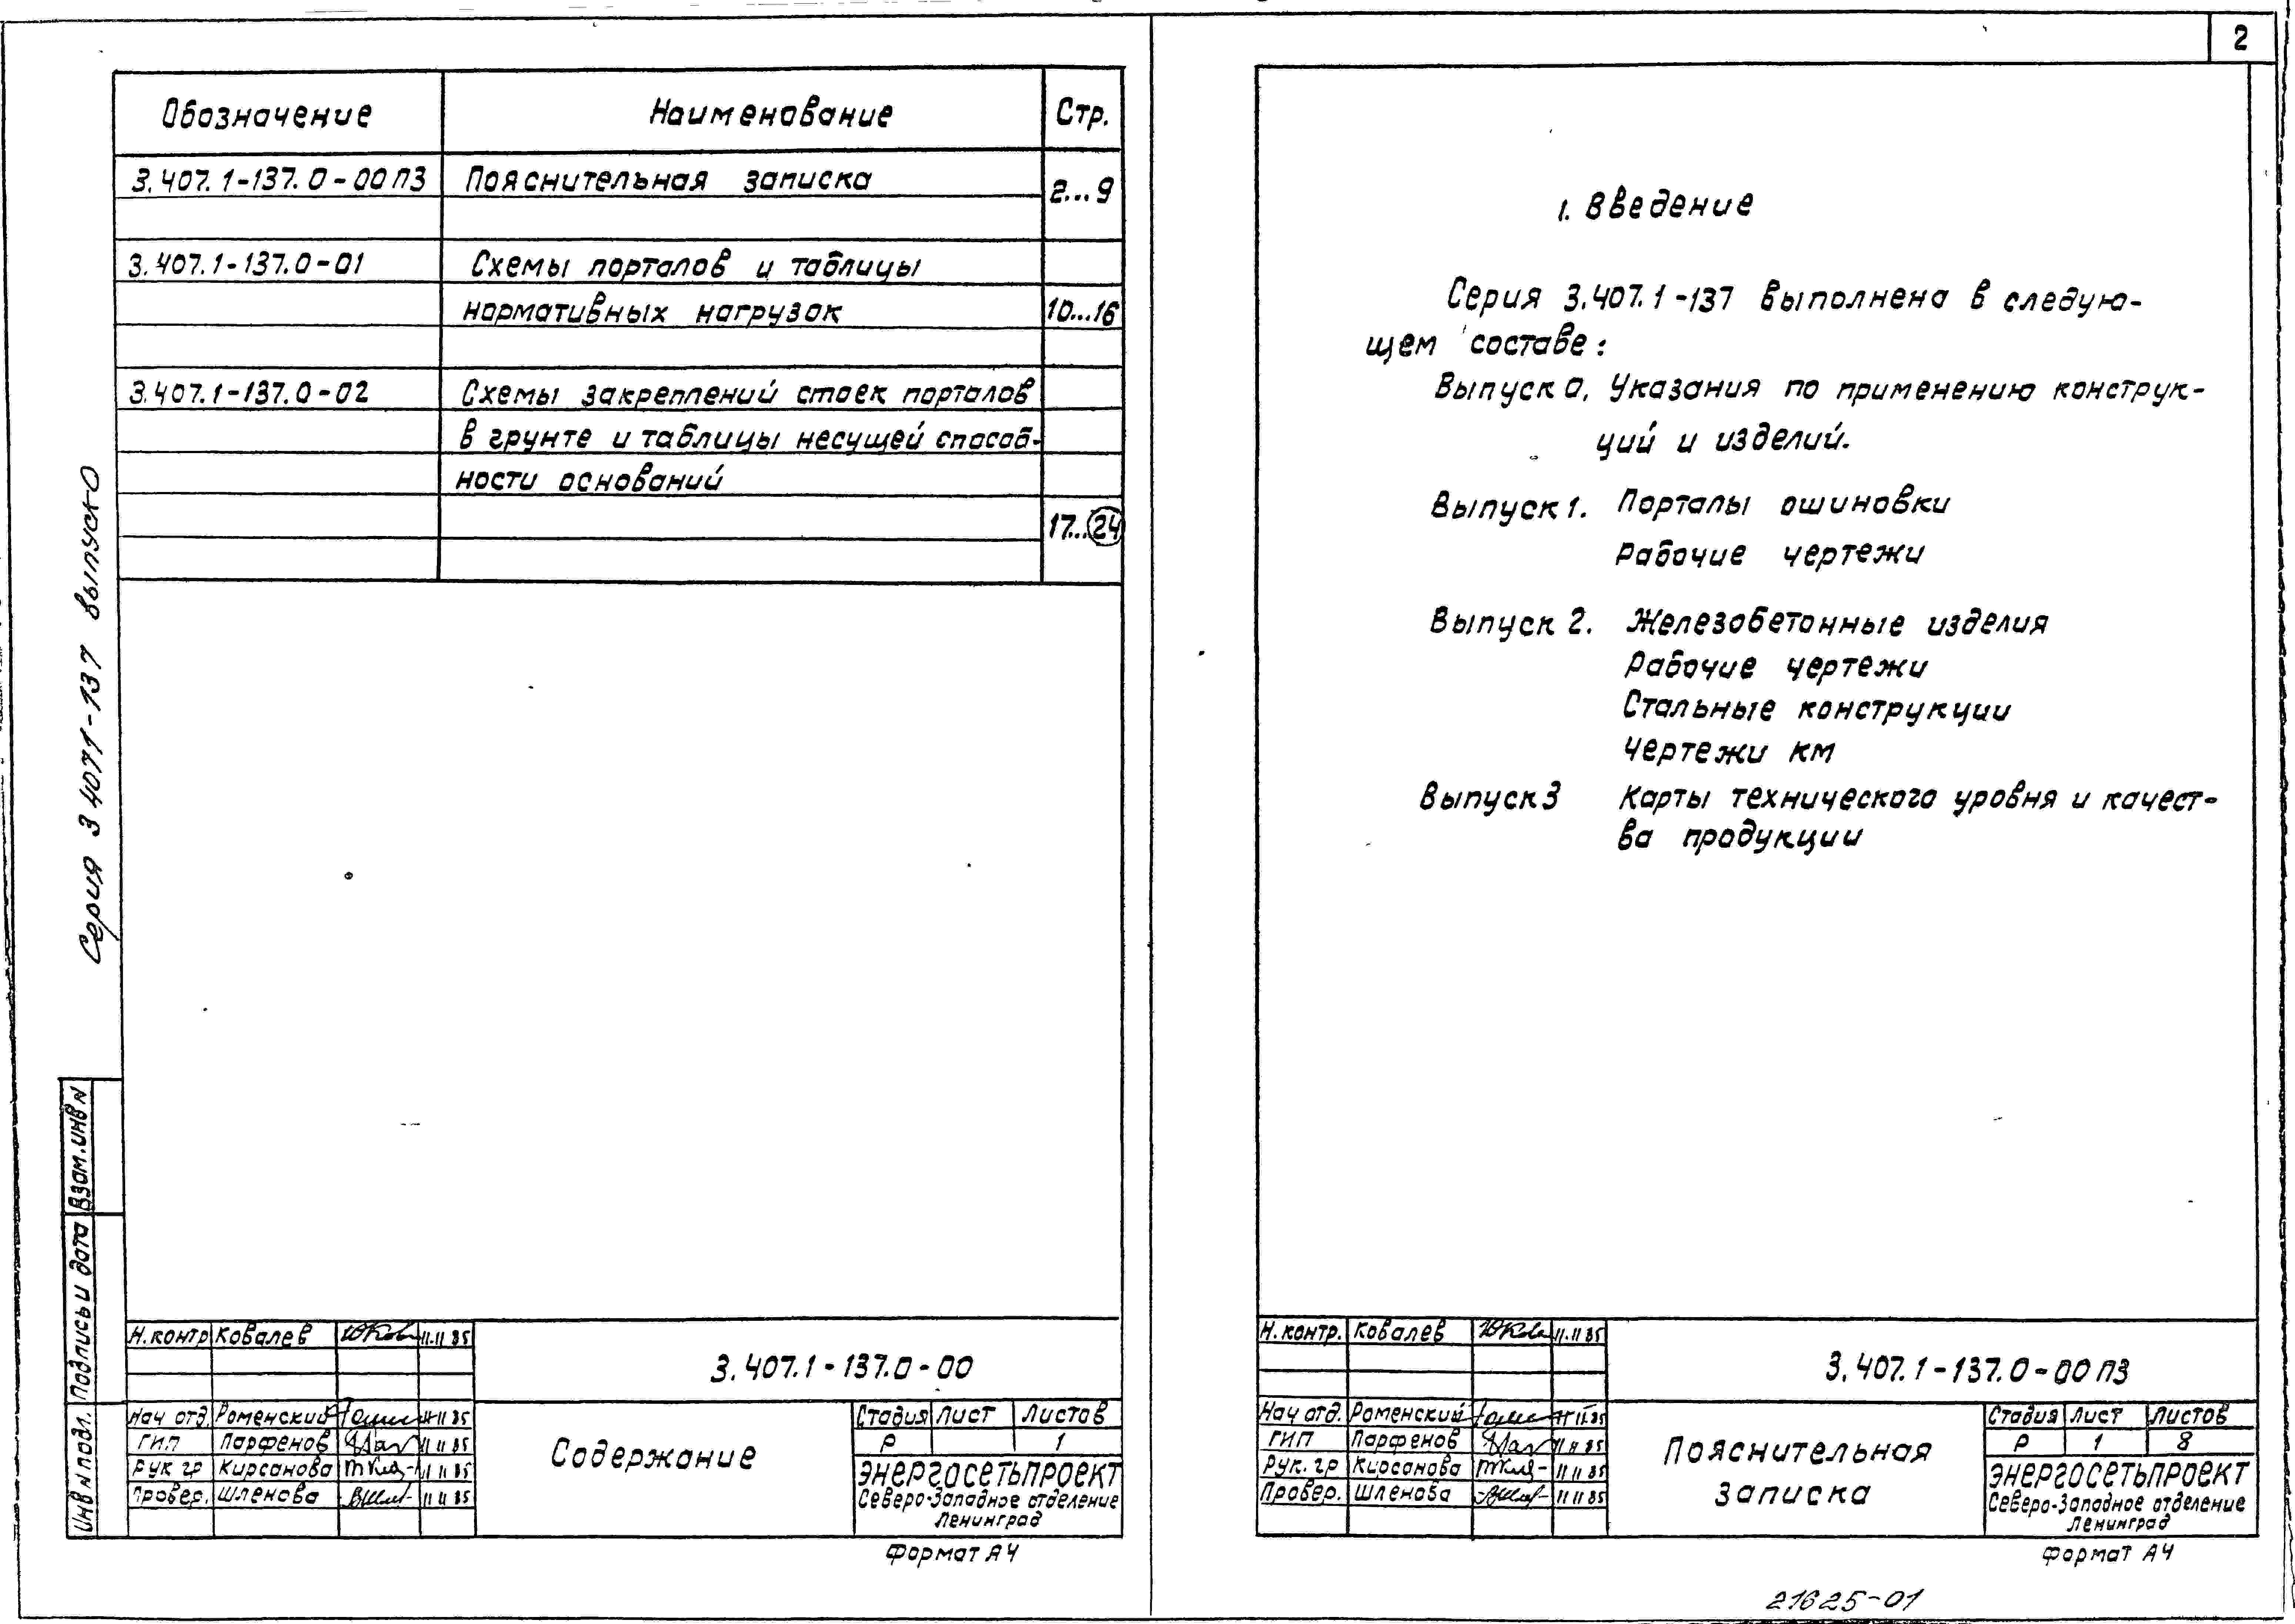 2
Обозначение Наименование Стр.
3.407.1-137.0-00ПЗ Пояснительная записка 2...9
3.407.1-137.0-01 Схемы порталов и таблицы
нормативных нагрузок 10...16
3.407.1-137.0-02 Схемы закреплений стоек порталов
в грунте и таблицы несущей способ-
ности оснований
17...24
Серия 3 407 1-137 выпуск 0
Взам. инв N
Подпись и дата
Инв N подл.
Н. контр Ковалев 11.11 85
3.407.1-137.0-00
Нач отд. Роменский 11 85
ГИП Парфенов 11 11 85
Рук гр Кирсанова 11 11 85
Провер. Шленова 11 11 85
Содержание
Стадия Лист Листов
Р 1
ЭНЕРГОСЕТЬПРОЕКТ
Северо-Западное отделение
Ленинград
Формат А4
1. Введение
Серия 3.407.1-137 выполнена в следую-
щем составе:
Выпуск 0. Указания по применению конструк-
ций и изделий.
Выпуск 1. Порталы ошиновки
Рабочие чертежи
Выпуск 2. Железобетонные изделия
Рабочие чертежи
Стальные конструкции
Чертежи КМ
Выпуск 3 Карты технического уровня и качест-
ва продукции
Н. контр. Ковалев 11.11 85
3.407.1-137.0-00 ПЗ
Нач отд. Роменский 11 85
ГИП Парфенов 11 11 85
Рук. гр Кирсанова 11 11 85
Провер. Шленова 11 11 85
Пояснительная
записка
Стадия Лист Листов
Р 1 8
ЭНЕРГОСЕТЬПРОЕКТ
Северо-Западное отделение
Ленинград
Формат А4
21625-01